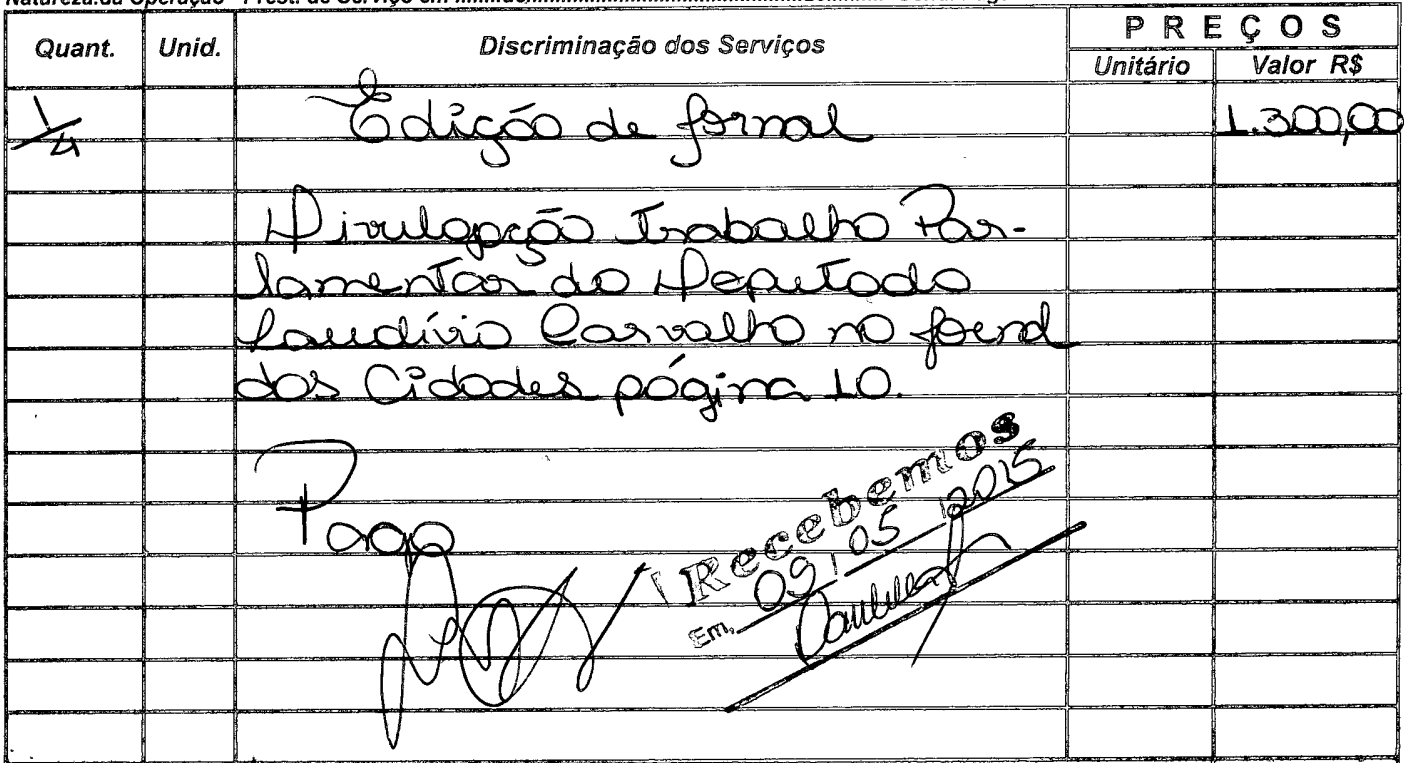 Natureza da Operação - Prest. de Serviço em
Quant. Unid. Discriminação dos Serviços PREÇOS
Unitário Valor R$
1/4 Edição de Jornal 1.300,00
Divulgação Trabalho Par-
lamentar do Deputado
Laudívio Carvalho no Jornal
das Cidades página 10.
Pago
Recebemos
Em, 09 / 05 / 2015